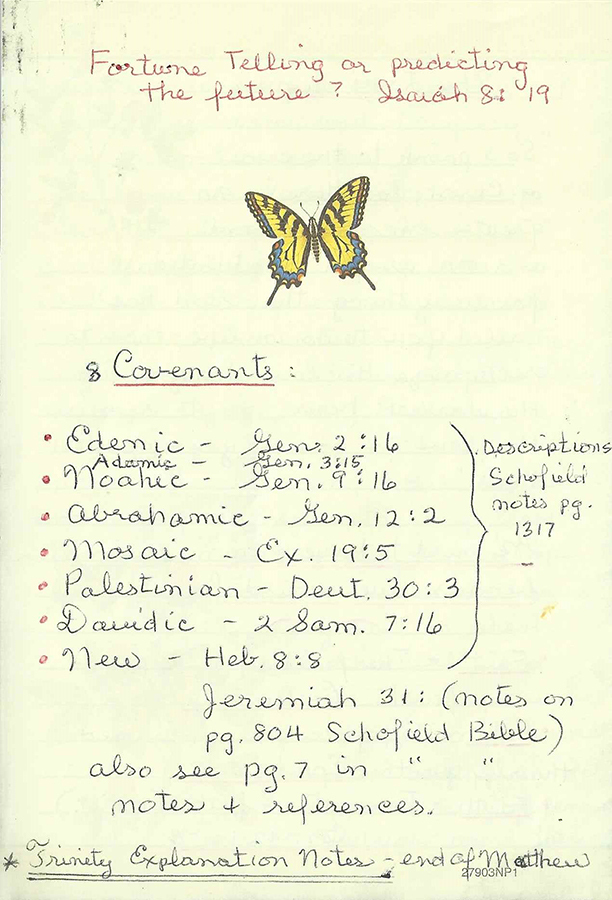 Fortune Telling or predicting
the future? Isaiah 8:19
8 Covenants:
• Edenic - Gen. 2:16
Adamic - Gen. 3:15
• Noahic - Gen. 9:16
• Abrahamic - Gen. 12:2
• Mosaic - Ex. 19:5
• Palestinian - Deut. 30:3
• Davidic - 2 Sam. 7:16
• New - Heb. 8:8
Descriptions
Schofield
notes pg.
1317
Jeremiah 31: (notes on
pg. 804 Schofield Bible)
also see pg. 7 in " "
notes + references.
* Trinity Explanation Notes - end of Matthew
27903NP1